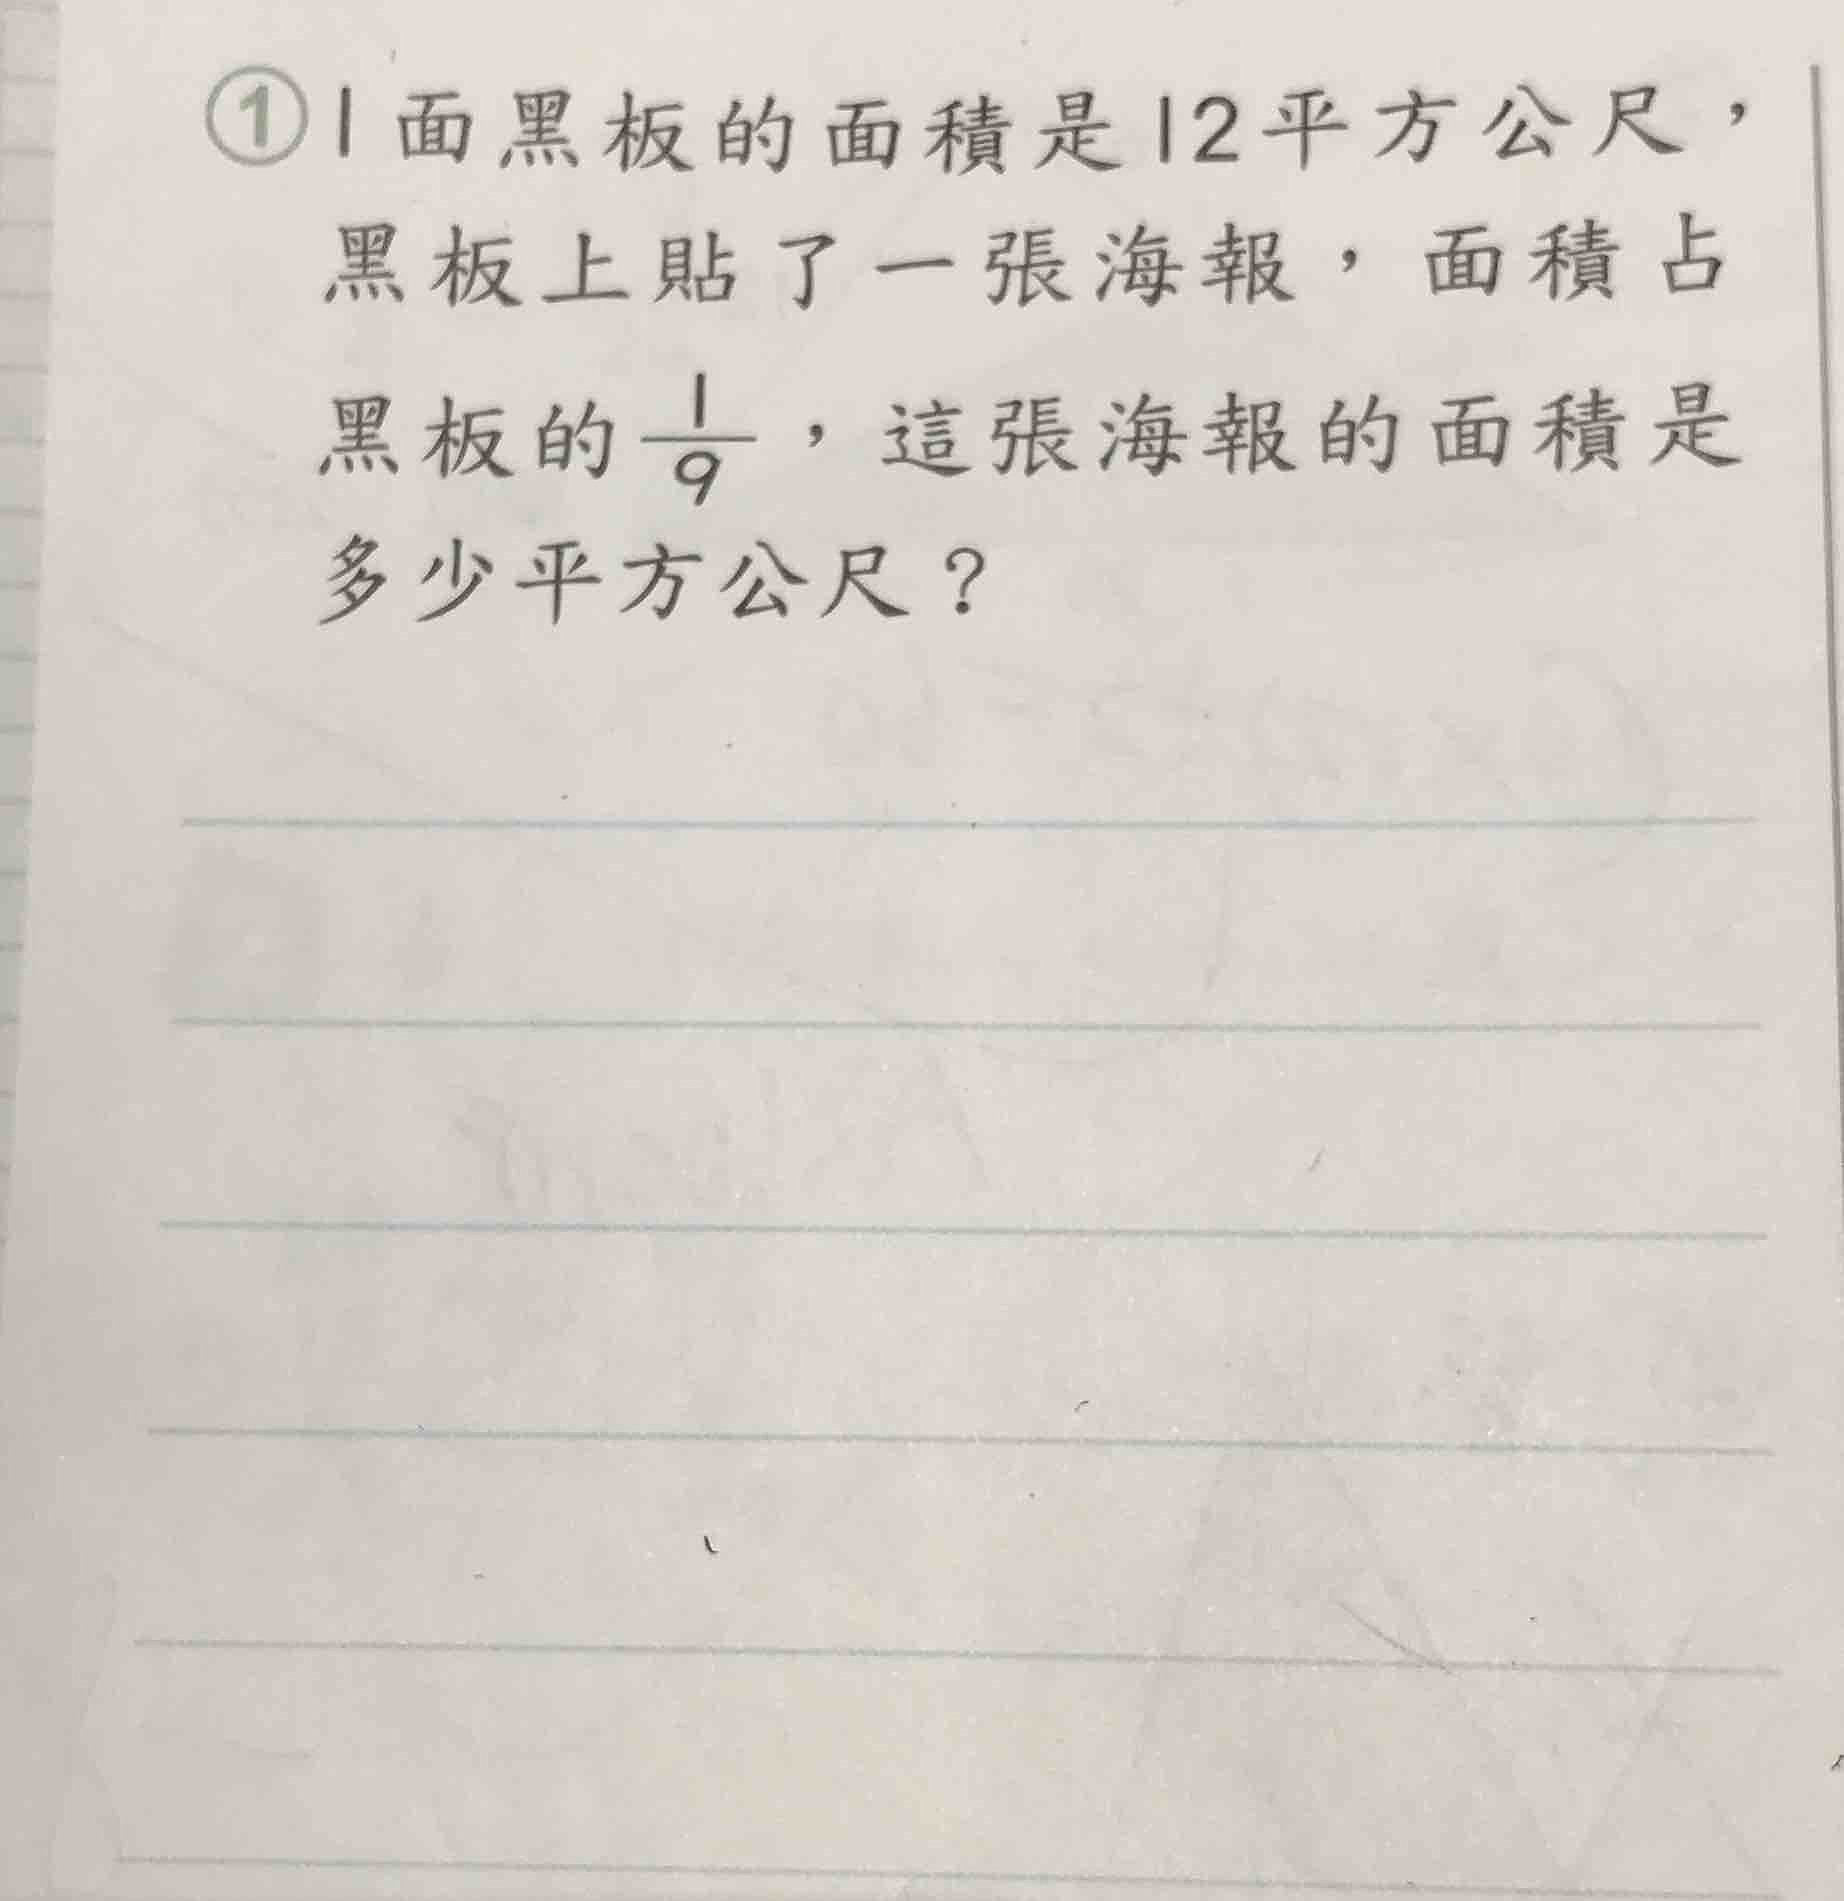 ① 1面黑板的面積是12平方公尺，
黑板上貼了一張海報，面積占
黑板的1/9，這張海報的面積是
多少平方公尺？